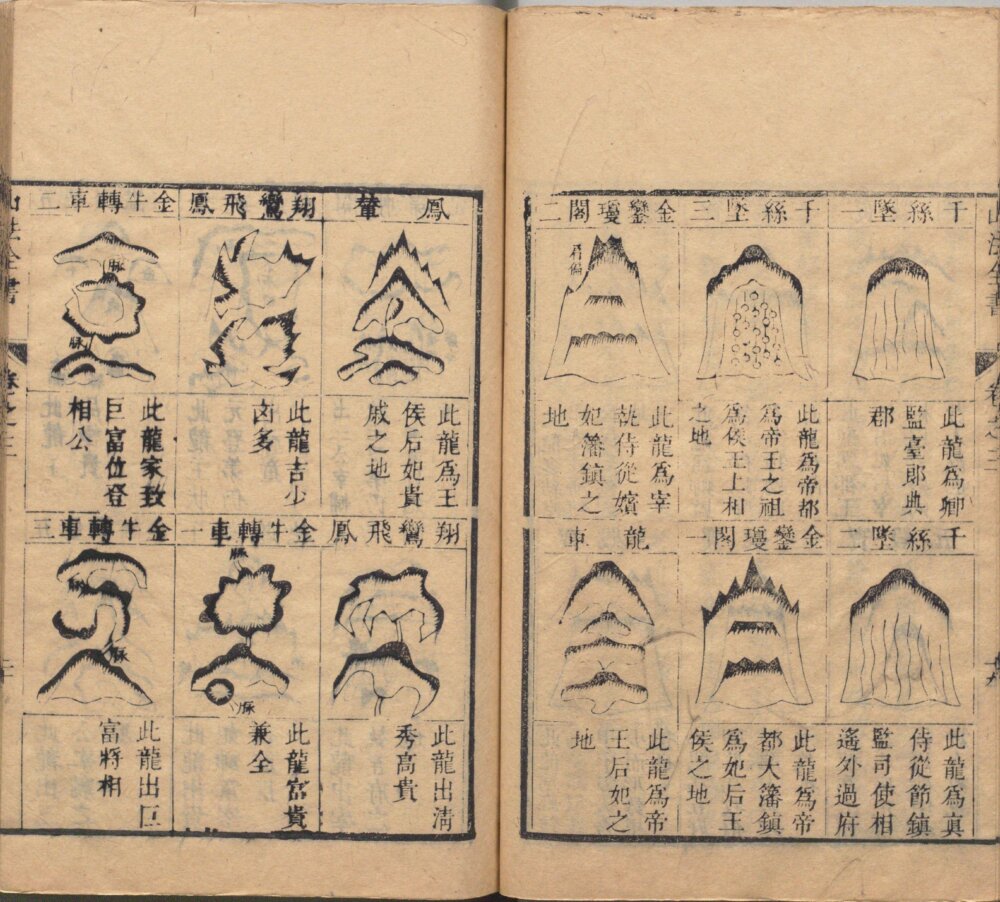 山法全書
卷之三
千絲墜一
此龍爲卿
監臺郎典
郡
千絲墜三
此龍爲帝都
爲帝王之祖
爲侯王上相
之地
金鑾瓊閣二
此龍爲宰
執侍從嬪
妃藩鎮之
地
千絲墜二
此龍爲真
侍從節鎮
監司使相
遙外過府
金鑾瓊閣一
此龍爲帝
都大藩鎮
爲妃后王
侯之地
龍車
此龍爲帝
王后妃之
地
鳳輦
此龍爲王
侯后妃貴
戚之地
翔鸞飛鳳
此龍吉少
凶多
金牛轉車二
脉
脉
此龍家致
巨富位登
相公
翔鸞飛鳳
此龍出清
秀高貴
金牛轉車一
脉
脉
此龍富貴
兼全
金牛轉車三
脉
脉
此龍出巨
富將相